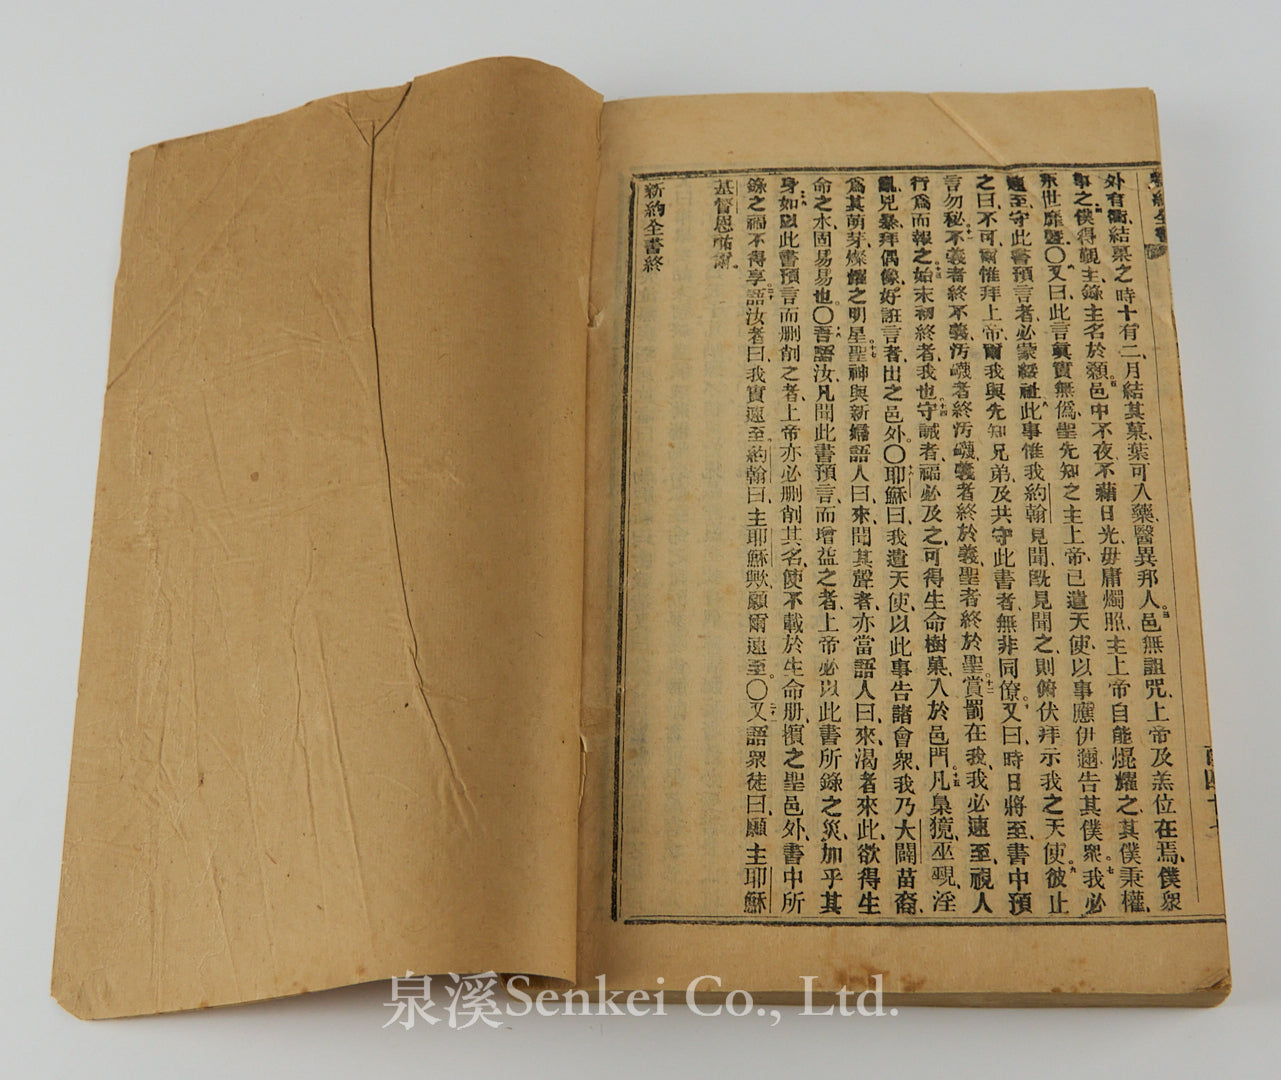 新約全書
外有衢、結菓之時十有二、月結其菓、葉可入藥、醫異邦人。三邑無詛咒、上帝及羔位在焉、僕衆
事之。四僕得觀主、錄主名於顙。五邑中不夜、不藉日光、毋庸燭照、主上帝自能焜耀之、其僕秉權、
永世靡曁〇六又曰、此言眞實無僞、聖先知之主上帝、已遣天使、以事應伊邇、告其僕衆。七我必
速至、守此書預言者、必蒙綏祉。八此事惟我約翰見聞、旣見聞之、則俯伏拜示我之天使。九彼止
之曰、不可、爾惟拜上帝、爾我與先知兄弟、及共守此書者、無非同僚。十又曰、時日將至、書中預
言勿秘。十一不義者終不義、汚衊者終汚衊、義者終於義、聖者終於聖。十二賞罰在我、我必速至、視人
行爲而報之。十三始末初終者我也。十四守誡者福必及之、可得生命樹菓、入於邑門。十五凡梟獍、巫覡、淫
亂、兇暴、拜偶像、好誑言者、出之邑外。〇十六耶穌曰、我遣天使、以此事告諸會衆、我乃大闢苗裔、
爲其萌芽、燦耀之明星。十七聖神與新婦語人曰、來、聞其聲者、亦當語人曰來、渴者來此、欲得生
命之水、固易易也。〇十八吾語汝、凡聞此書預言、而增益之者、上帝必以此書所錄之災、加乎其
身。十九如以此書預言而删削之者、上帝亦必删削其名、使不載於生命册、擯之聖邑外、書中所
錄之福、不得享。二十語汝者曰、我實速至、約翰曰、主耶穌歟、願爾速至。〇二十一又語衆徒曰、願主耶穌
基督恩祐爾。
新約全書終
泉溪Senkei Co., Ltd.